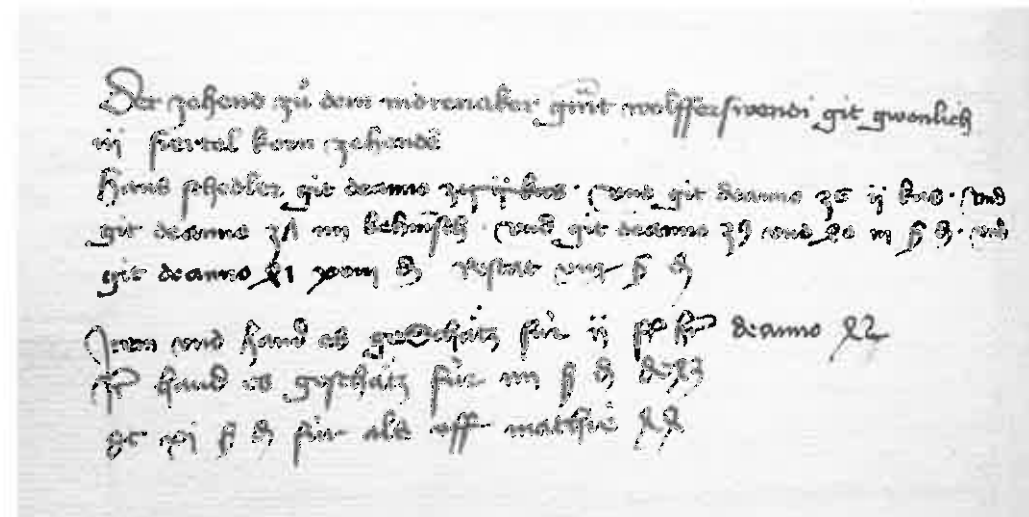 Der zehend zů dem morenaker gnt wolfferswendi git gwonlich
iij fiertal korn zehendē
Hans phedler git deanno 35 ij kos · vnd git deanno 36 ij kos · vnd
git deanno 37 iiij behmsch · vnd git deanno 39 vnd 40 iij ß ₰ · vnd
git deanno 41 xviij ₰ restat viij ß ₰
vnd hand es geschätz für ij deanno 42
hand es geschätz für iiij ß ₰ de 43
xi ß ₰ für als vff mathie 44